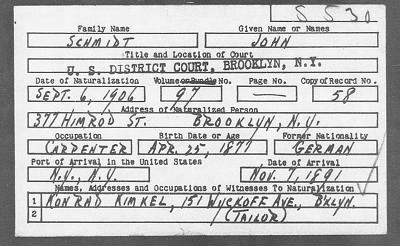 S 530
Family Name Given Name or Names
SCHMIDT JOHN
Title and Location of Court
U. S. DISTRICT COURT, BROOKLYN, N.Y.
Date of Naturalization Volume or Bundle No. Page No. Copy of Record No.
SEPT. 6, 1906 97 — 58
Address of Naturalized Person
377 HIMROD ST. BROOKLYN, N.Y.
Occupation Birth Date or Age Former Nationality
CARPENTER APR. 25, 1877 GERMAN
Port of Arrival in the United States Date of Arrival
N.Y., N.Y. NOV. 7, 1891
Names, Addresses and Occupations of Witnesses To Naturalization
1 KONRAD KIMKEL, 151 WYCKOFF AVE., BKLYN.
2 (TAILOR)